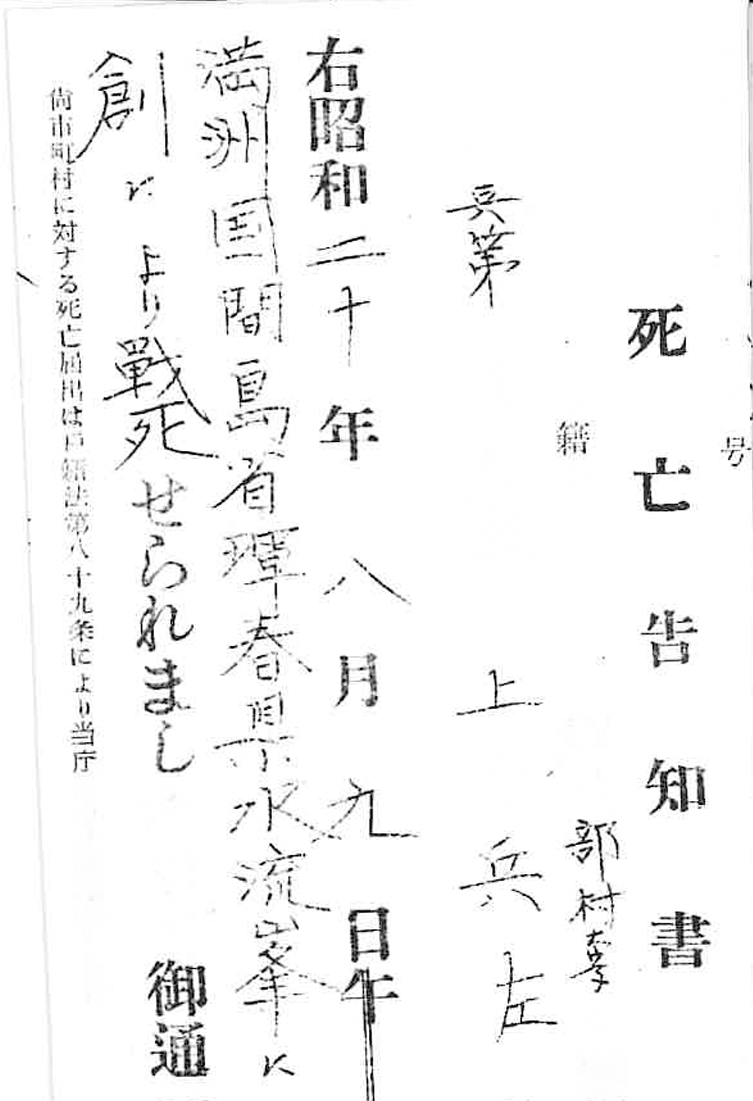 号
死亡告知書
籍 部村大字
上兵左
兵第
右昭和二十年八月九日午
満洲国間島省琿春県水流峯に
創により戰死せられまし 御通
尚市町村に対する死亡届出は戸籍法第八十九条により当庁